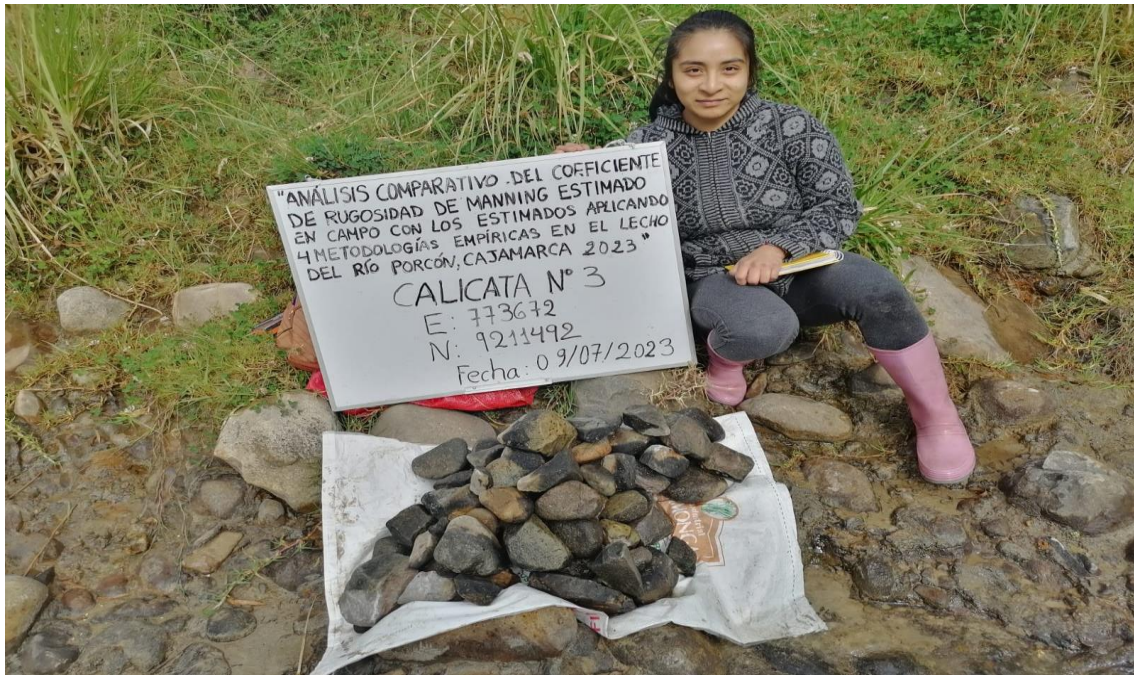 "ANÁLISIS COMPARATIVO DEL COEFICIENTE
DE RUGOSIDAD DE MANNING ESTIMADO
EN CAMPO CON LOS ESTIMADOS APLICANDO
4 METODOLOGÍAS EMPÍRICAS EN EL LECHO
DEL RÍO PORCÓN, CAJAMARCA 2023"
CALICATA N° 3
E: 773672
N: 9211492
Fecha: 09/07/2023